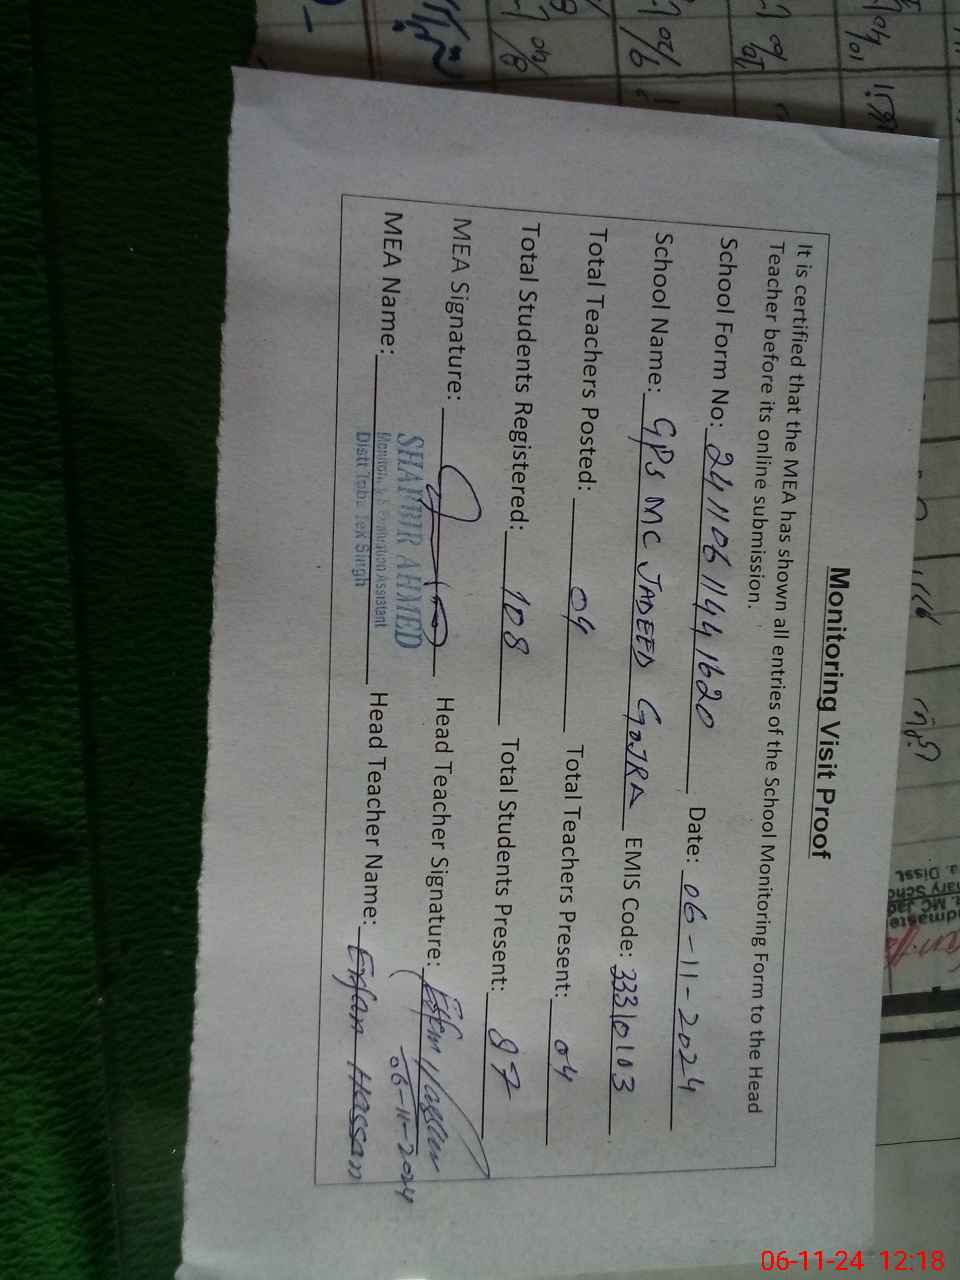 Monitoring Visit Proof
It is certified that the MEA has shown all entries of the School Monitoring Form to the Head
Teacher before its online submission.
School Form No: 24110611441620 Date: 06-11-2024
School Name: GPS MC JADEED GOJRA EMIS Code: 33310103
Total Teachers Posted: 04 Total Teachers Present: 04
Total Students Registered: 108 Total Students Present: 87
MEA Signature: Head Teacher Signature:
06-11-2024
MEA Name: SHABBIR AHMED Head Teacher Name: Erfan Hassan
Monitoring & Evaluation Assistant
Distt Toba Tek Singh
06-11-24 12:18